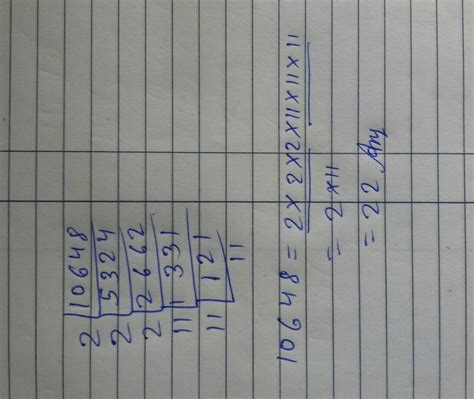 2 | 10648
2 | 5324
2 | 2662
11 | 1331
11 | 121
11
10648 = 2×2×2×11×11×11
= 2×11
= 22 Ans